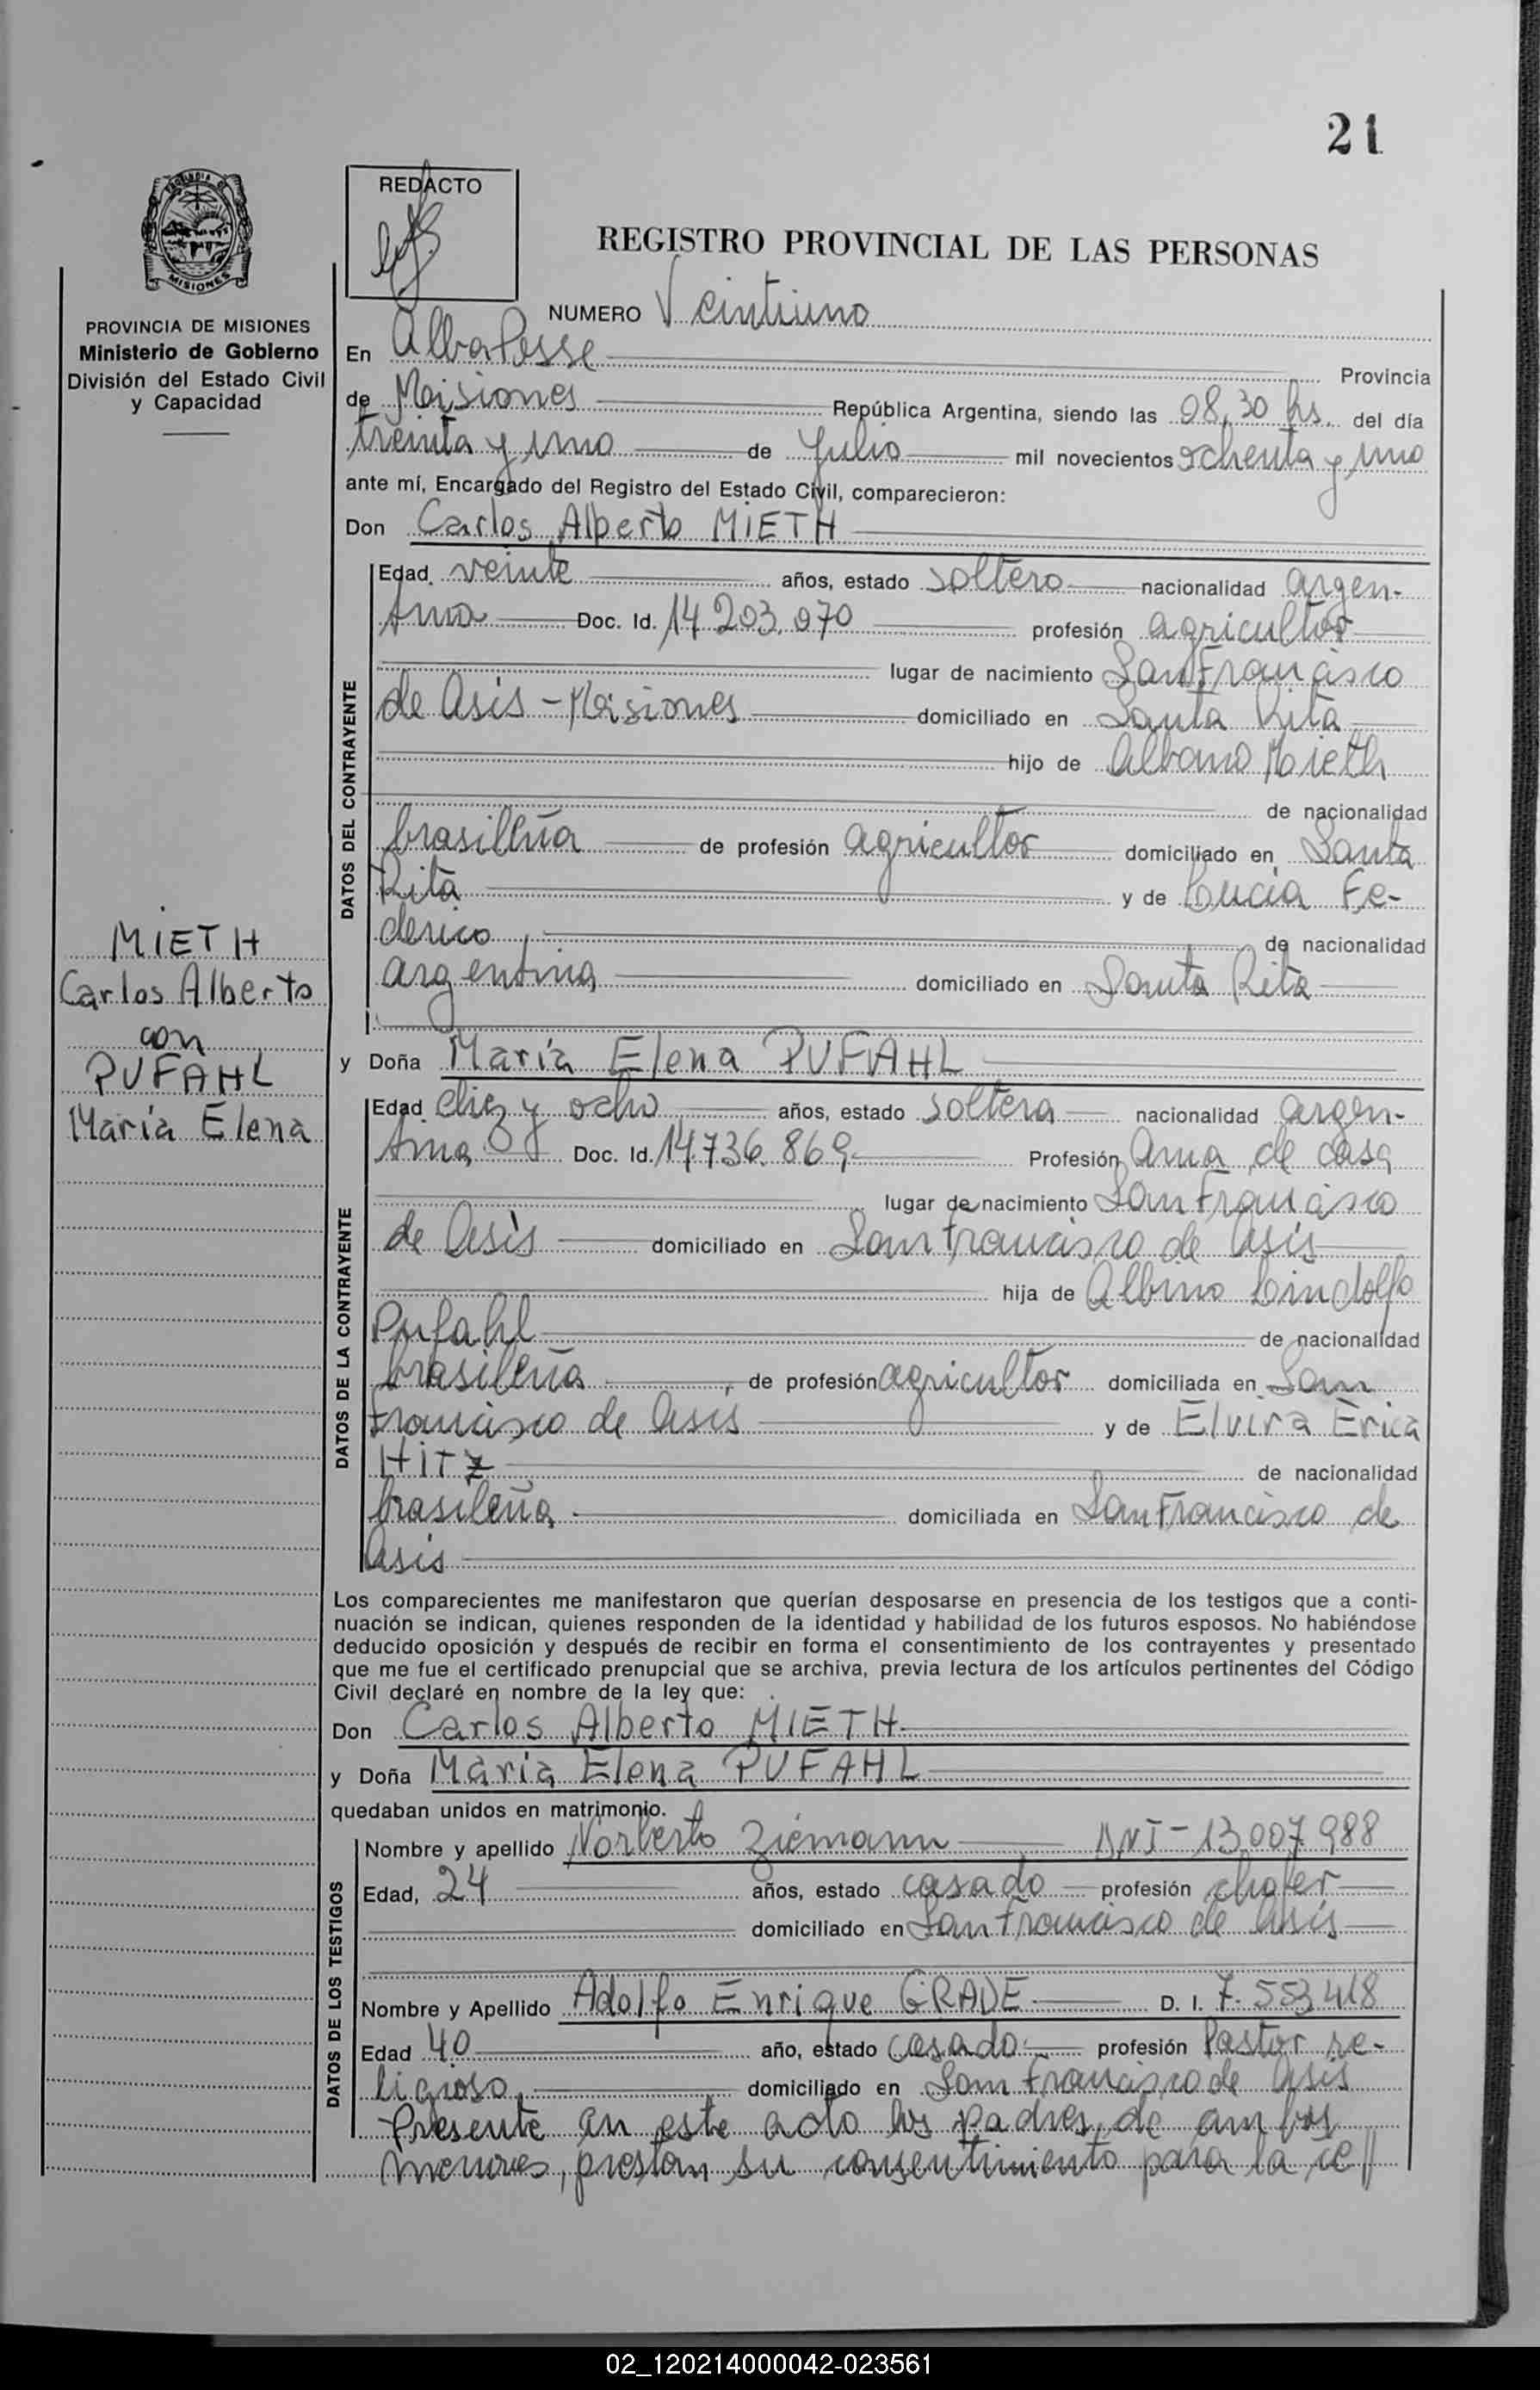 21
REDACTO
REGISTRO PROVINCIAL DE LAS PERSONAS
MISIONES
PROVINCIA DE MISIONES
Ministerio de Gobierno
División del Estado Civil
y Capacidad
MIETH
Carlos Alberto
con
PUFAHL
María Elena
NUMERO Veintiuno
En Alba Posse Provincia
de Misiones República Argentina, siendo las 08,30 hs. del día
treinta y uno de Julio mil novecientos ochenta y uno
ante mí, Encargado del Registro del Estado Civil, comparecieron:
Don Carlos Alberto MIETH
DATOS DEL CONTRAYENTE
Edad veinte años, estado soltero nacionalidad argen-
tina Doc. Id. 14.203.070 profesión agricultor
lugar de nacimiento San Francisco
de Asís - Misiones domiciliado en Santa Rita
hijo de Albano Mieth
de nacionalidad
brasileña de profesión agricultor domiciliado en Santa
Rita y de Lucia Fe-
derico, de nacionalidad
argentina domiciliado en Santa Rita
y Doña María Elena PUFAHL
DATOS DE LA CONTRAYENTE
Edad diez y ocho años, estado soltera nacionalidad argen-
tina Doc. Id. 14.736.869 Profesión ama de casa
lugar de nacimiento San Francisco
de Asís domiciliado en San Francisco de Asís
hija de Albino Lindolfo
Pufahl de nacionalidad
brasileña, de profesión agricultor domiciliada en San
Francisco de Asís y de Elvira Erica
HITZ de nacionalidad
brasileña domiciliada en San Francisco de
Asis
Los comparecientes me manifestaron que querían desposarse en presencia de los testigos que a conti-
nuación se indican, quienes responden de la identidad y habilidad de los futuros esposos. No habiéndose
deducido oposición y después de recibir en forma el consentimiento de los contrayentes y presentado
que me fue el certificado prenupcial que se archiva, previa lectura de los artículos pertinentes del Código
Civil declaré en nombre de la ley que:
Don Carlos Alberto MIETH
y Doña María Elena PUFAHL
quedaban unidos en matrimonio.
DATOS DE LOS TESTIGOS
Nombre y apellido Norberto Ziemann DNI - 13.007.988
Edad, 24 años, estado casado profesión chofer
domiciliado en San Francisco de Asís
Nombre y Apellido Adolfo Enrique GRADE D. I. 7.553.418
Edad 40 año, estado casado profesión Pastor re-
ligioso, domiciliado en San Francisco de Asís
Presente en este acto los padres de ambos
menores, prestan su consentimiento para la ce//
02_120214000042-023561